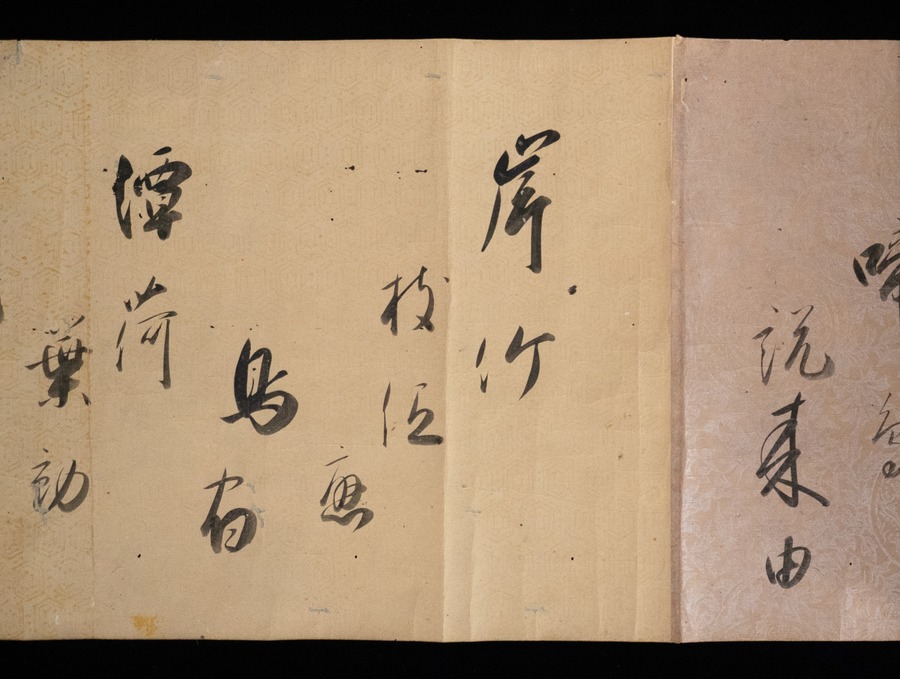 説来由
岸竹
枝低
應
鳥宿
潭荷
葉動